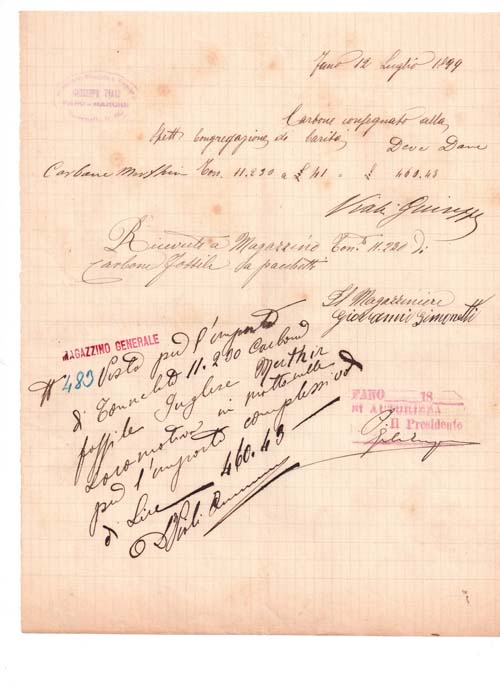 Fano 12 Luglio 1899
GIUSEPPE VIALI
FANO - MARCHE
Carbone consegnato alla
Spett Congregazione di Carità,
Deve Dare
Carbone Merthir Ton. 11.230 a £ 41 = £ 460.43
Viali Giuseppe
Ricevuto a Magazzino Ton. 11.230 di
Carbone Fossile da pacchetti
Il Magazziniere
Giovanni Simonetti
MAGAZZINO GENERALE
N 483 Visto per l'importo
di Tonnellate 11.230 Carbone
fossile Inglese Merthir
Locomotiva in mattonelle
per l'importo complessivo
di Lire 460.43
FANO 18
SI AUTORIZZA
Il Presidente